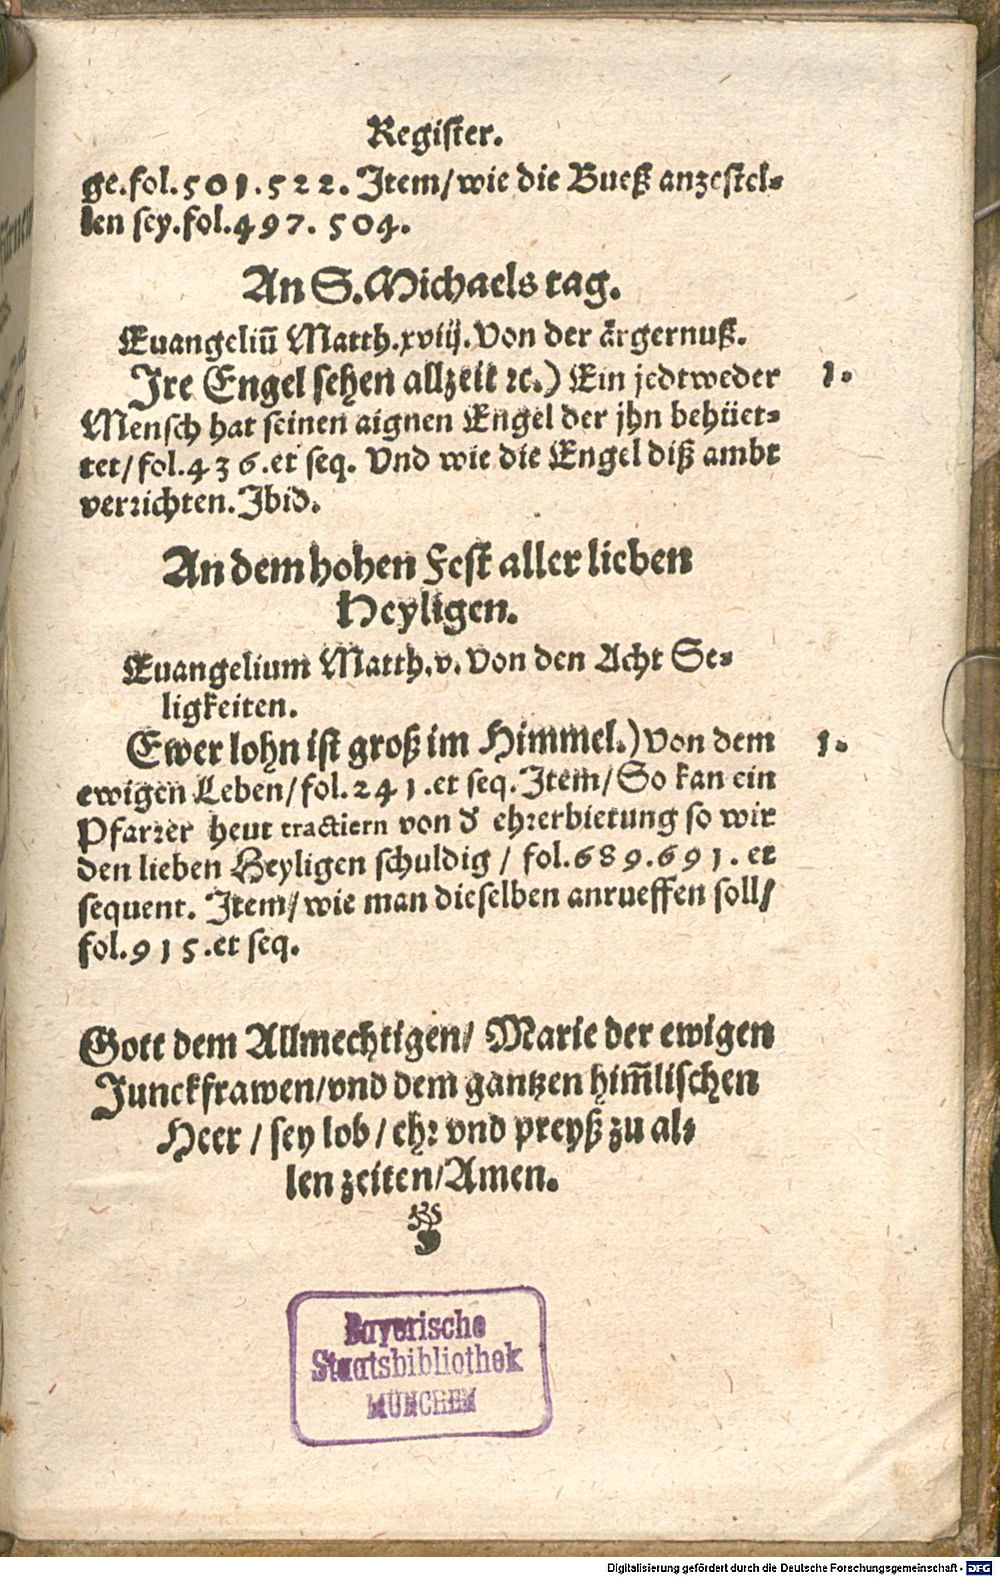 Register.
ge.fol.501.522. Item/wie die Bueß anzestel⸗
len sey.fol.497. 504.
An S.Michaels tag.
Euangeliū Matth.xviij.Von der ärgernuß.
Ire Engel sehen allzeit ꝛc.) Ein jedtweder 1.
Mensch hat seinen aignen Engel der jhn behüet⸗
tet/fol.436.et seq. Vnd wie die Engel diß ambt
verrichten.Ibid.
An dem hohen Fest aller lieben
Heyligen.
Euangelium Matth.v.Von den Acht Se⸗
ligkeiten.
Ewer lohn ist groß im Himmel.)Von dem 1.
ewigen Leben/fol.241.et seq.Item/So kan ein
Pfarrer heut tractiern von d̕ ehrerbietung so wir
den lieben Heyligen schuldig / fol.689.691. et
sequent. Item/wie man dieselben anrueffen soll/
fol.915.et seq.
Gott dem Allmechtigen/ Marie der ewigen
Junckfrawen/vnd dem gantzen him̄lischen
Heer / sey lob / ehr vnd preyß zu al⸗
len zeiten/Amen.
Bayerische
Staatsbibliothek
MÜNCHEN
Digitalisierung gefördert durch die Deutsche Forschungsgemeinschaft - DFG